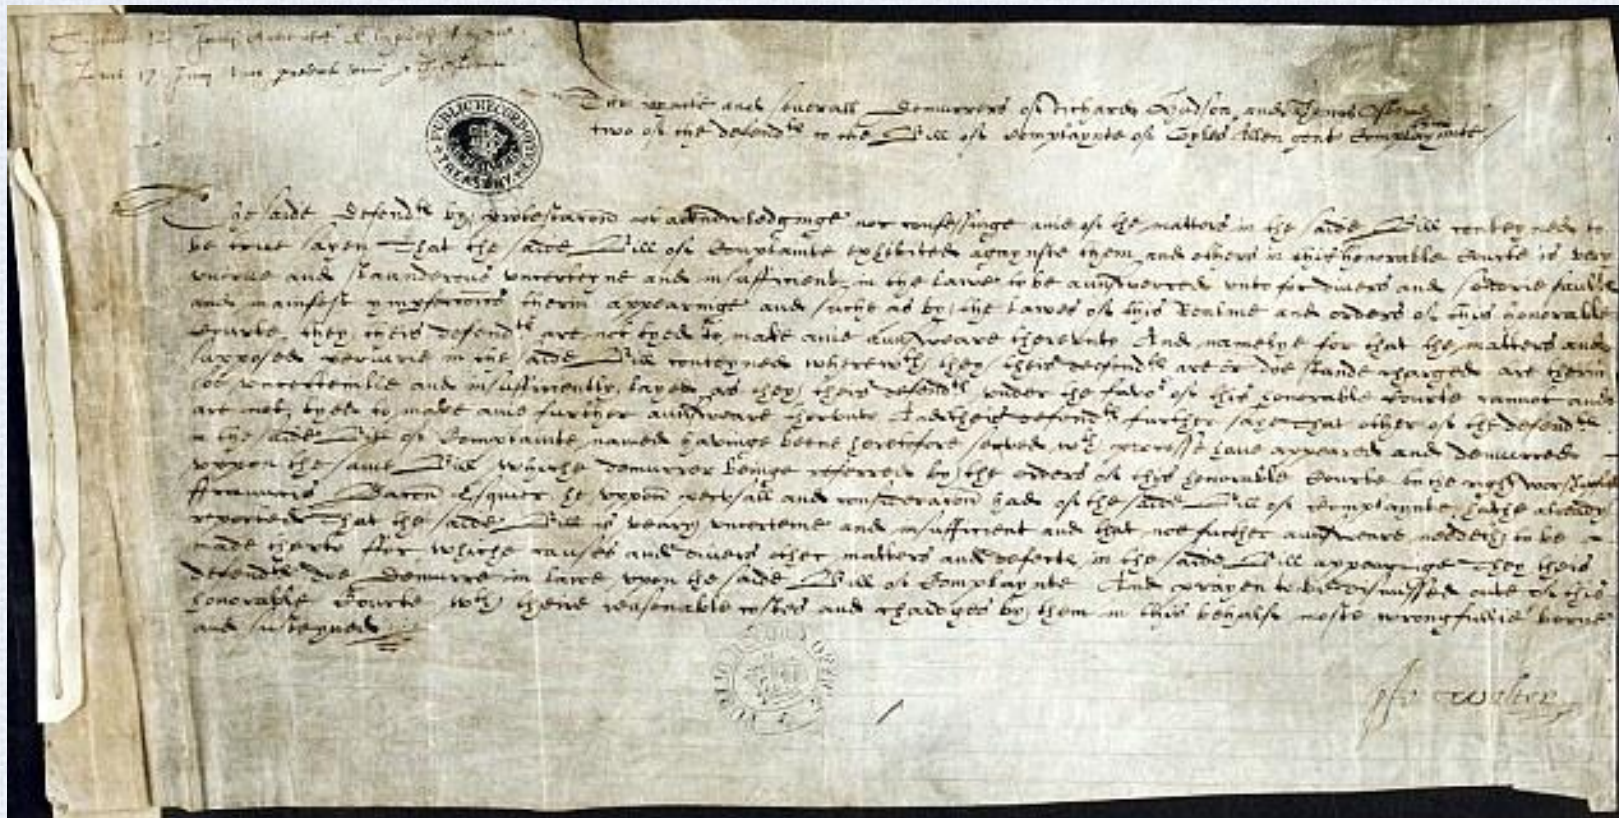 The joynte and severall Demurrers of Richard Hudson and Thomas Osborne
two of the defendtes to the Bill of Complaynte of Gyles Allen gent Complaynante
PUBLIC RECORD OFFICE TREASURY
The saide Defendtes by protestacion not acknowledginge nor confessinge anie of the matters in the saide Bill conteyned to
be true sayen That the saide Bill of Complainte exhibited agaynste them and others in this honorable Courte is very
untrue and slaunderous uncerteyne and insufficient in the Lawe to be aunswered unto for divers and sondrie faultes
and manifest ymperfeccions therin appearinge and suche as by the Lawes of this Realme and orders of this honorable
Courte they theis defendtes are not tyed to make anie aunsweare therunto And namelye for that the matters and
supposed periurie in the saide Bill conteyned wherewth they theis defendtes are or doe stande charged are therin
soe uncertenlie and insufficiently layed as they theis defendtes under the favor of this honorable Courte cannot and
are not tyed to make anie further aunsweare therunto And theis defendtes further saye That other of the defendtes
in the saide Bill of Complainte named havinge beene heretofore served wth processe have appeared and demurred
uppon the same Bill whiche demurrer beinge referred by the orders of this honorable Courte to the right worshipfull
ffrauncis Bacon Esquier he uppon perusall and consideracon had of the saide Bill of Complaynte hathe already
reported That the saide Bill is veary uncerteine and insufficient and that noe further aunsweare needeth to be
made therto ffor whiche causes and divers other matters and defectes in the saide Bill appearinge They theis
defendtes doe Demurre in lawe upon the saide Bill of Complaynte And prayen to be dismissed oute of this
honorable Courte wth theire reasonable costes and chardges by them in this behalfe moste wrongfullie borne
and susteyned
Jo Walter